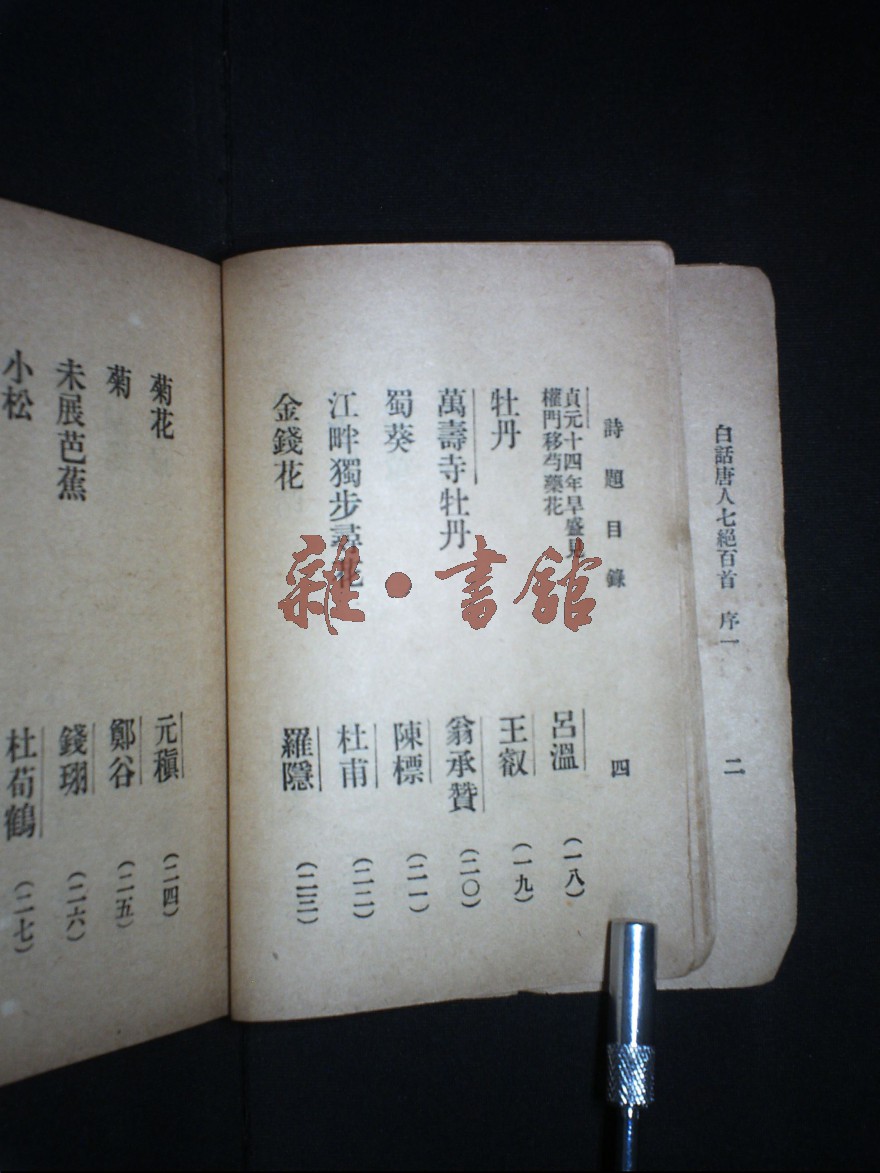 白話唐人七絕百首 序一 二
詩題目錄 四
貞元十四年旱盛見
權門移芍藥花 呂溫 (一八)
牡丹 王叡 (一九)
萬壽寺牡丹 翁承贊 (二〇)
蜀葵 陳標 (二一)
江畔獨步尋花 杜甫 (二二)
金錢花 羅隱 (二三)
菊花 元稹 (二四)
菊 鄭谷 (二五)
未展芭蕉 錢珝 (二六)
小松 杜荀鶴 (二七)
雜·書館